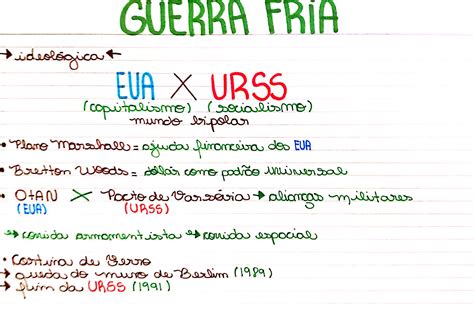 GUERRA FRIA
→ ideológica ←
EUA X URSS
(capitalismo) (socialismo)
mundo bipolar
• Plano Marshall = ajuda financeira dos EUA
• Bretton Woods = dólar como padrão universal
• OTAN X Pacto de Varsóvia → alianças militares
(EUA) (URSS)
→ corrida armamentista → corrida espacial
• Cortina de Ferro
→ queda do muro de Berlim (1989)
→ fim da URSS (1991)